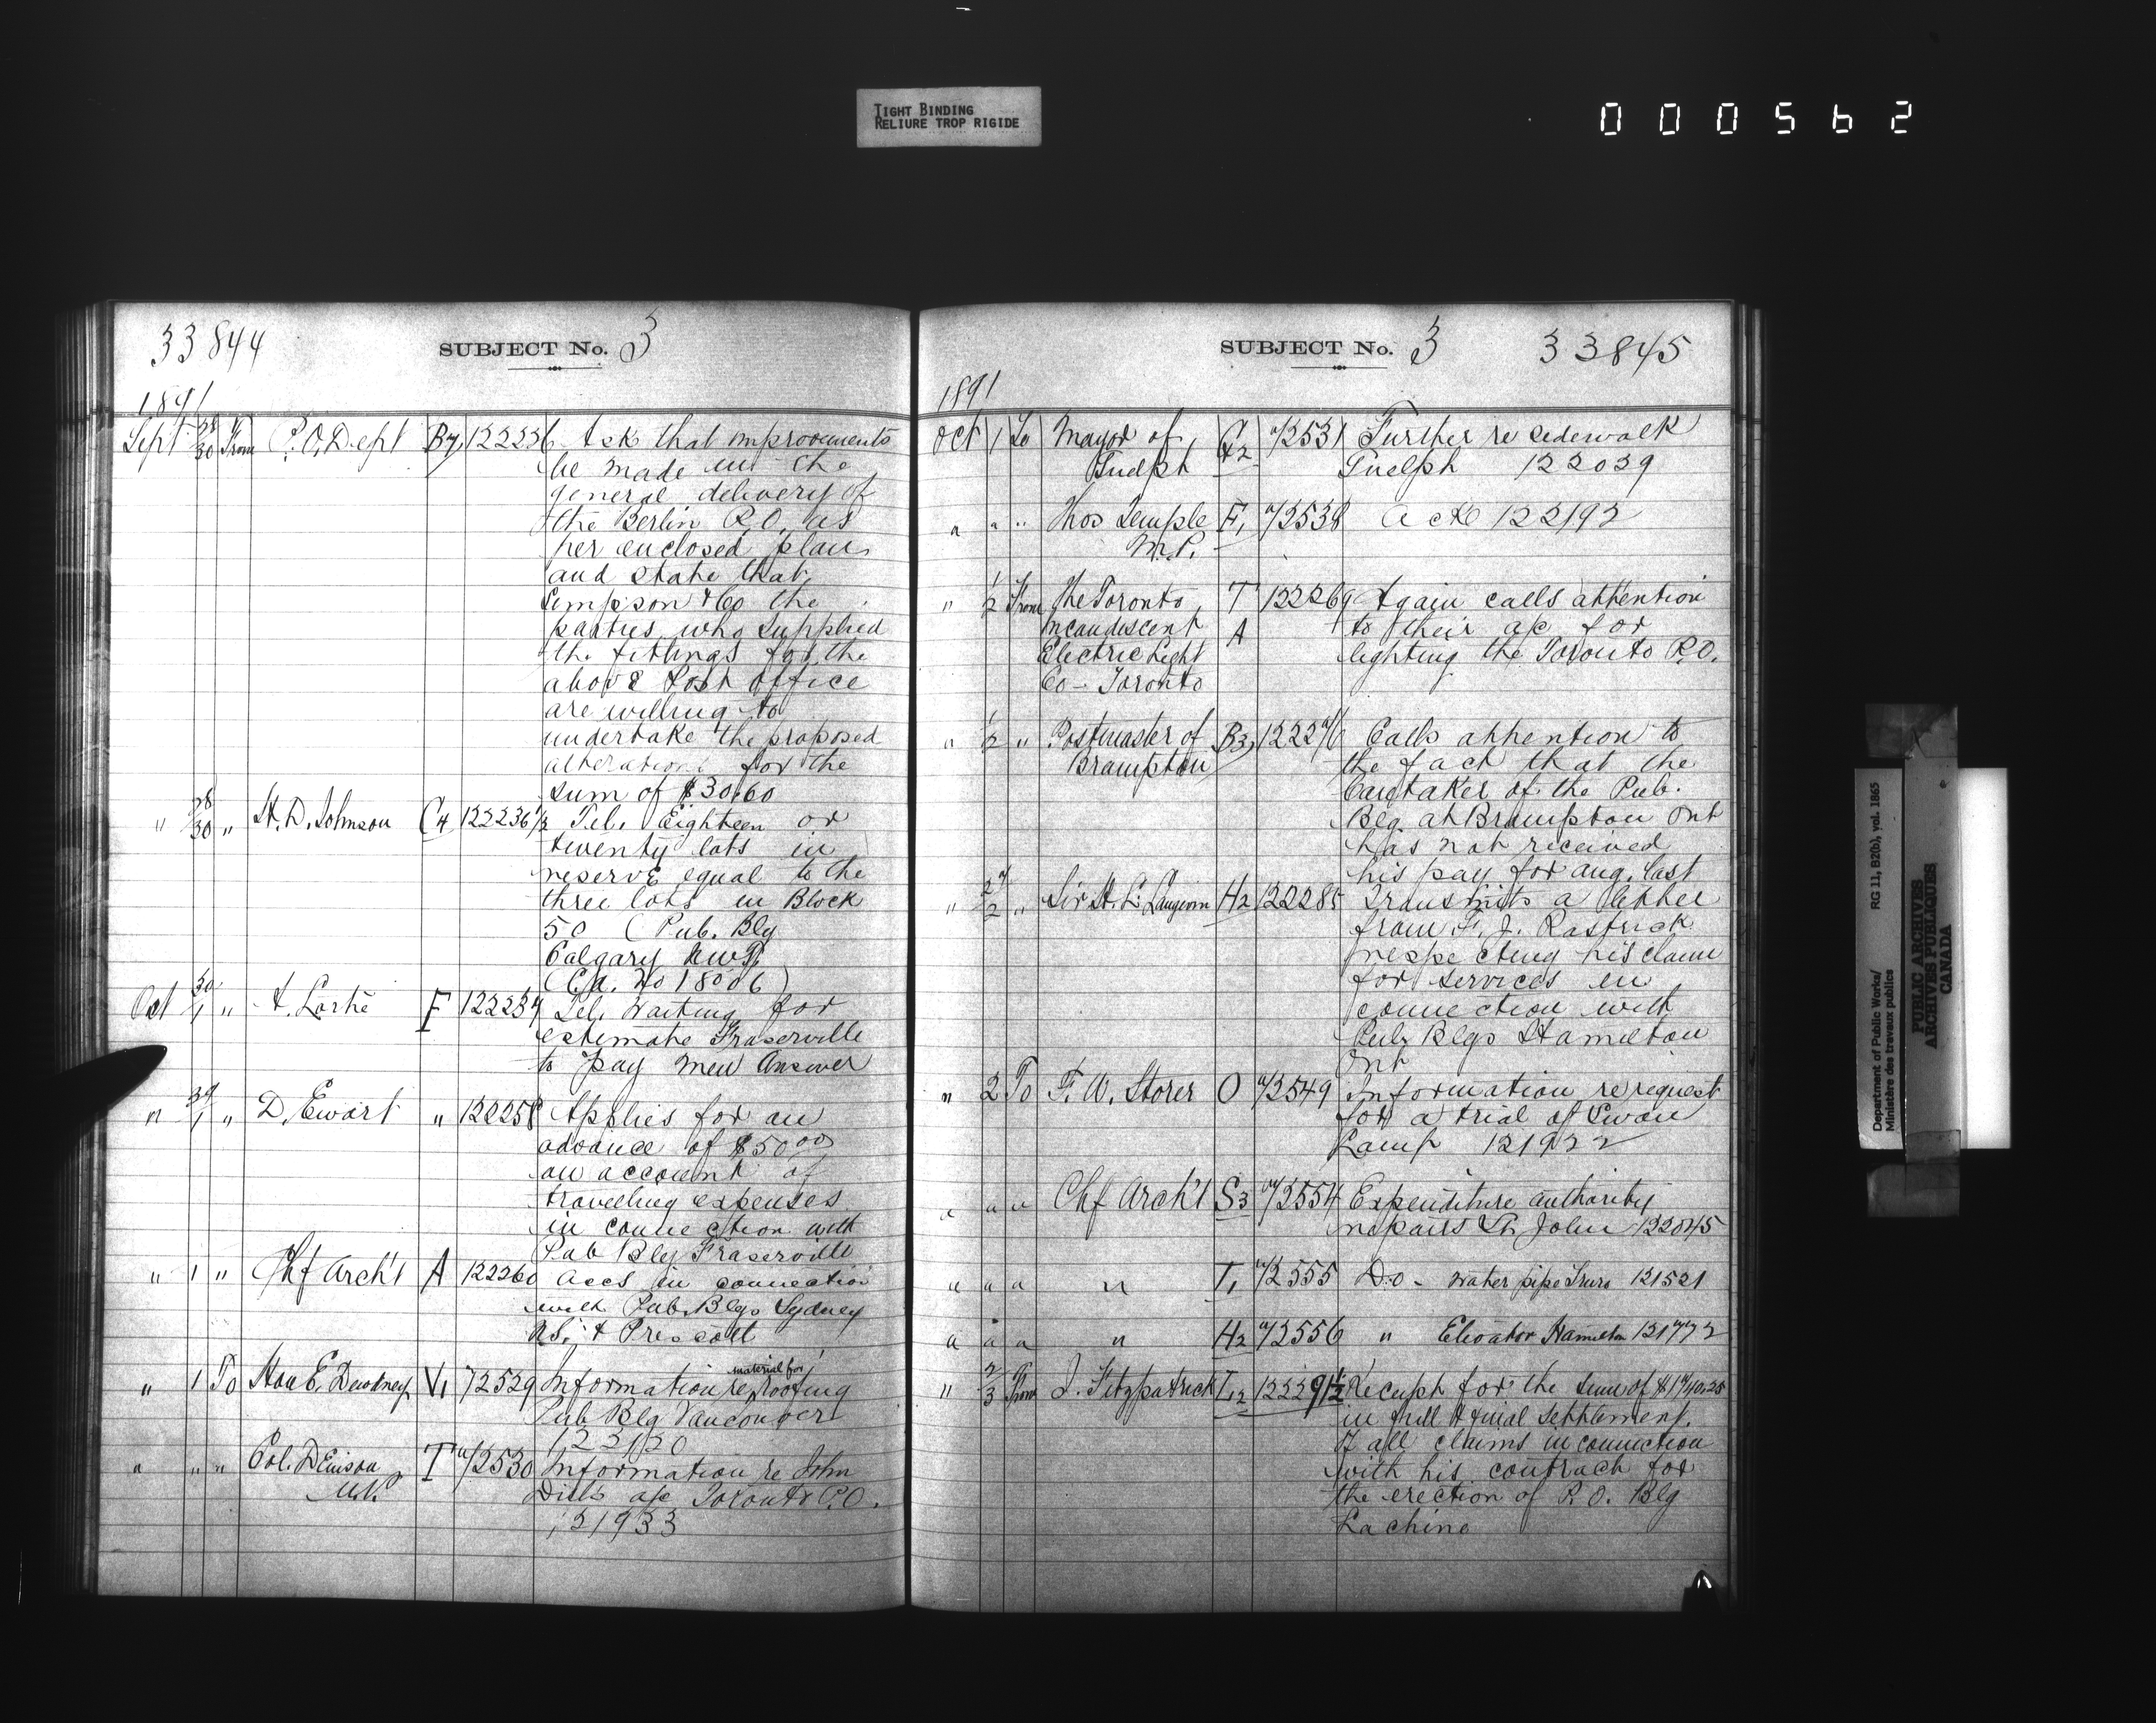 TIGHT BINDING
RELIURE TROP RIGIDE
000562
33844
SUBJECT No. 3
1891
Sept 28/30 From P.O. Dept B7 122236 Ask that improvements
be made in the
general delivery of
the Berlin P.O. as
per enclosed plan
and state that
Simpson & Co the
parties who supplied
the fittings for the
above Post Office
are willing to
undertake the proposed
alterations for the
sum of $30.60
" 28/30 " H. D. Johnson C4 122236 1/2 Tel. Eighteen or
twenty lots in
reserve equal to the
three lots in Block
50 (Pub. Blg
Calgary NWT.
(Ca. No 18006)
Oct 30/1 " A. Lortie F 122257 Tel. Waiting for
estimate Fraserville
to pay men Answer
" 30/1 " D. Ewart " 122258 Applies for an
advance of $50.00
on account of
travelling expenses
in connection with
Pub Blg Fraserville
" 1 " Chf Arch't A 122260 Accs in connection
with Pub. Blgs Sydney
N.S. & Prescott
" 1 To Hon E. Dewdney V1 72529 Information re material for roofing
Pub Blg Vancouver
122120
" " " Col. Denison T 72530 Information re John
M.P. Dill's a/c Toronto P.O.
121933
SUBJECT No. 3
33845
1891
Oct 1 To Mayor of G2 72531 Further re sidewalk
Guelph Guelph 122039
" " " Thos Temple F1 72538 Ackd 122192
M.P.
" 1/2 From The Toronto T 122269 Again calls attention
Incandescent A to their a/c for
Electric Light lighting the Toronto P.O.
Co - Toronto
" 1/2 " Postmaster of B3 122276 Calls attention to
Brampton the fact that the
Caretaker of the Pub.
Blg at Brampton Ont
has not received
his pay for Aug. last
" 27/2 " Sir H. L. Langevin H2 122285 Transmits a letter
from F. J. Rastrick
respecting his claim
for services in
connection with
Pub Blgs Hamilton
Ont
" 2 To F. W. Storer O 72549 Information re request
for a trial of Swan
Lamp 121922
" " " Chf Arch't S3 72554 Expenditure authority
repairs St. John 122045
" " " " T1 72555 Do - water pipe Truro 121521
" " " " H2 72556 " Elevator Hamilton 121772
" 2/3 From J. Fitzpatrick L2 122291 1/2 Receipt for the sum of $1740.25
in full & final settlement
of all claims in connection
with his contract for
the erection of P.O. Blg
Lachine
Department of Public Works/ RG 11, B2(b), vol. 1865
Ministère des travaux publics
PUBLIC ARCHIVES
ARCHIVES PUBLIQUES
CANADA